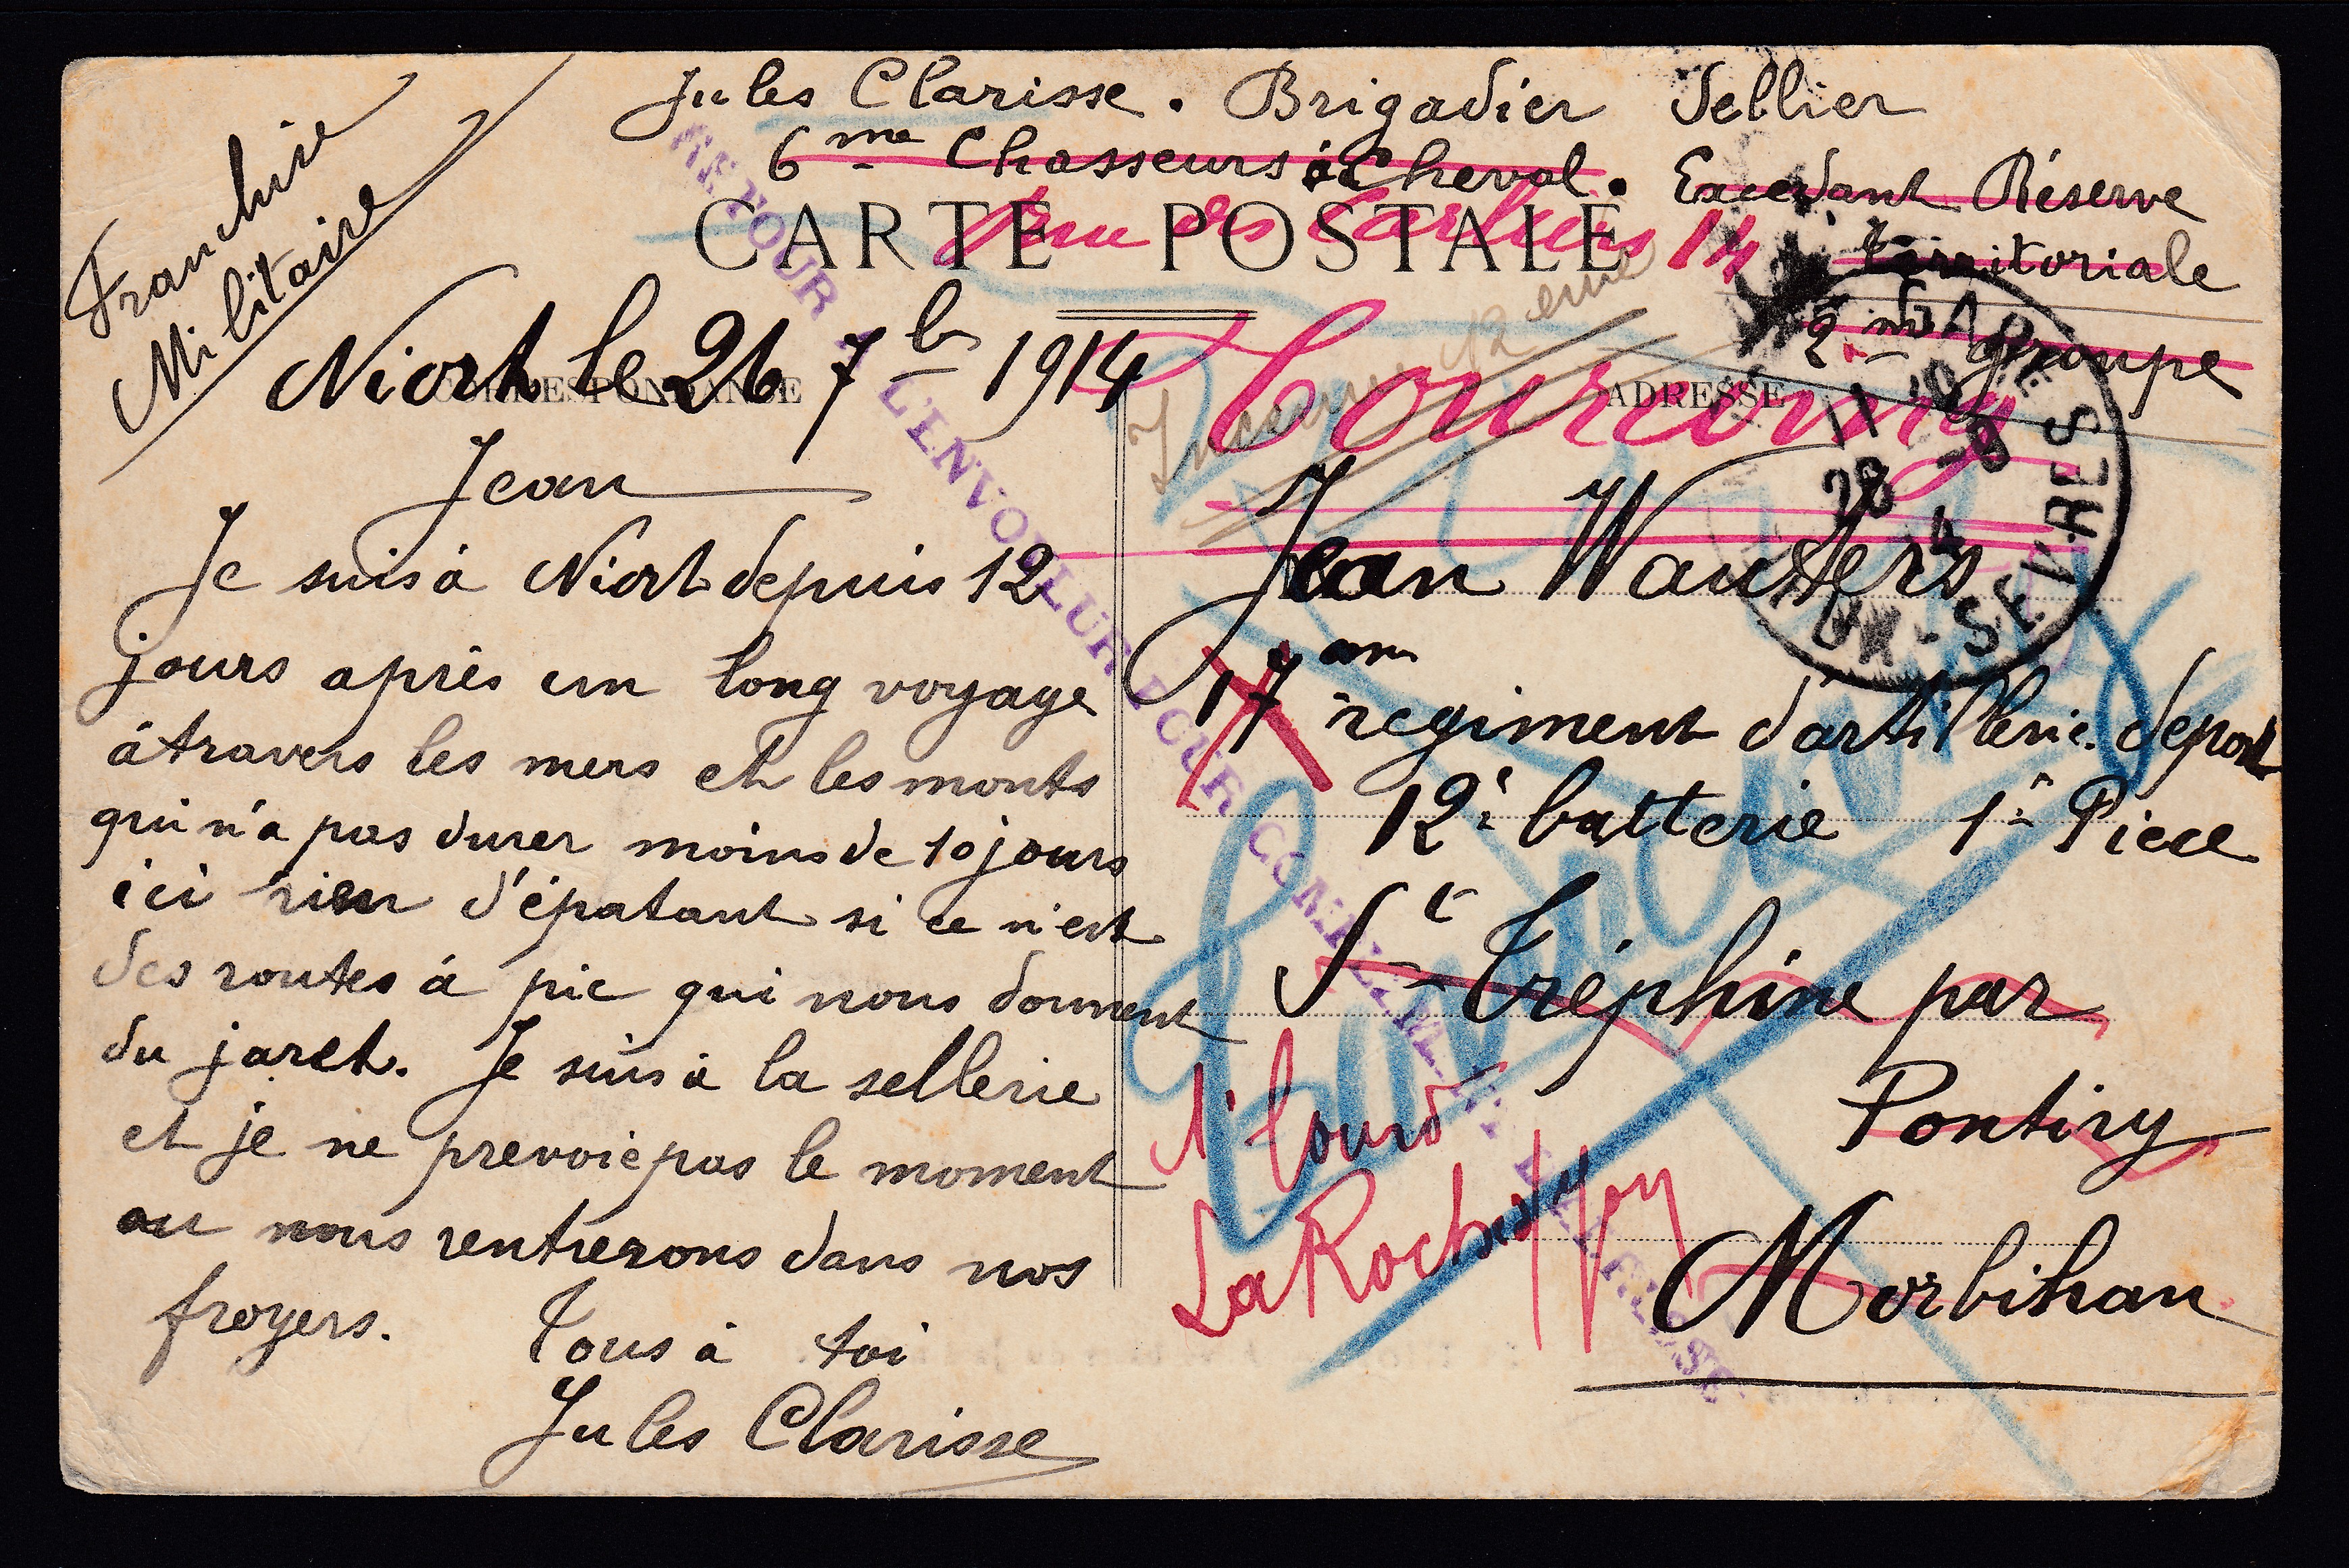 Jules Clarisse. Brigadier Sellier
6me Chasseurs à Cheval. Excedant Réserve
Territoriale
2me groupe
Franchise
Militaire
CARTE POSTALE
Rue des Carliers 14
Tourcoing
Inconnu 12eme
CORRESPONDANCE
ADRESSE
Niort le 26 7b 1914
Jean
Je suis à Niort depuis 12
jours après un long voyage
à travers les mers et les monts
qui n'a pas durer moins de 10 jours
ici rien d'épatant si ce n'est
des routes à pic qui nous donnent
du jaret. Je suis à la sellerie
et je ne prevoie pas le moment
ou nous rentrerons dans nos
froyers.
Tous à toi
Jules Clarisse
Jean Wauters
17em regiment d'artillerie. depot
12e batterie 1e Piece
Ste Tréphine par
Pontivy
Morbihan
1e lourd
La Roche s/ yon
RETOUR A L'ENVOYEUR POUR COMPLEMENT D'ADRESSE
GARE
11 10
28 -9
14
DEUX-SEVRES